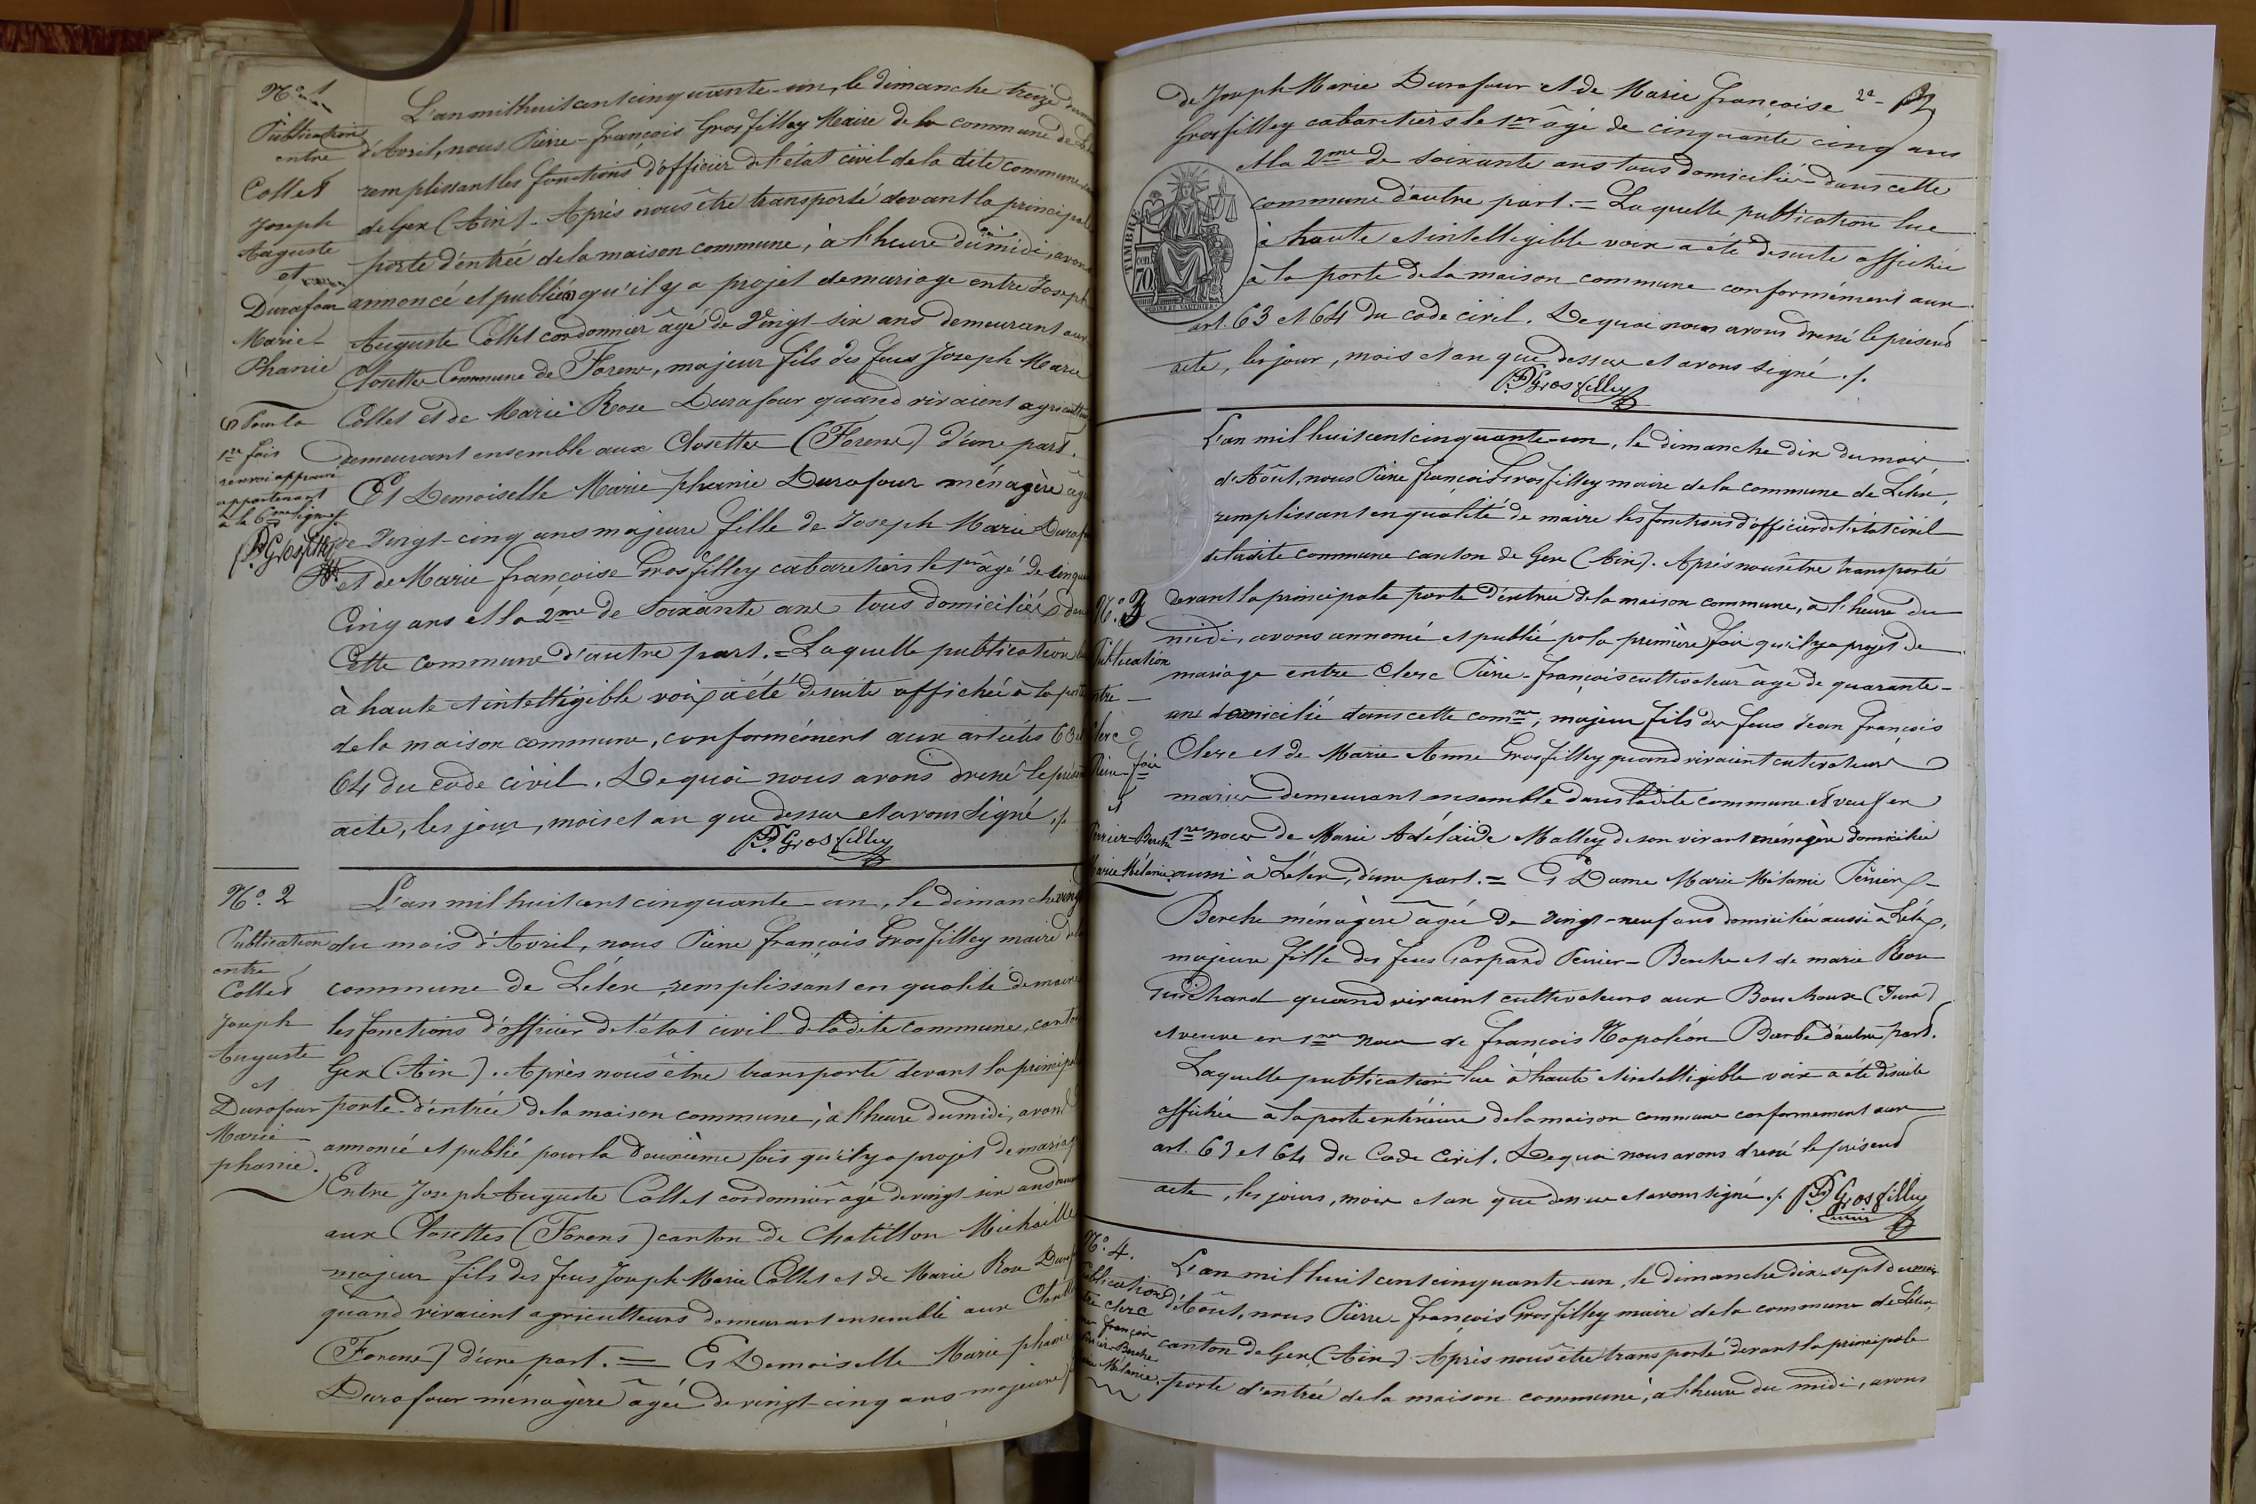 N° 1
Publication
entre
Collet
Joseph
Auguste
et
Durafour
Marie
Phanie
Pour la
1re fois
renvoi approuvé
appartenant
à la 6me ligne
PF Grosfilley
L'an mil huit cent cinquante-un, le dimanche treize
d'Avril, nous Pierre-François Grosfilley Maire de la commune de
remplissant les fonctions d'officier de l'état civil de la dite commune
de Gex (Ain). Après nous être transporté devant la principale
porte d'entrée de la maison commune, à l'heure du midi, avons
annoncé et publié qu'il y a projet de mariage entre Joseph
Auguste Collet cordonnier âgé de Vingt-six ans demeurant aux
Closettes Commune de Forens, majeur fils des feus Joseph Marie
Collet et de Marie Rose Durafour quand vivaient agriculteurs
demeurant ensemble aux Closettes (Forens) d'une part.
Et Demoiselle Marie phanie Durafour ménagère
de Vingt-cinq ans majeure fille de Joseph Marie
et de Marie françoise Grosfilley cabaretiers le 1er âgé de
Cinq ans et la 2me de Soixante ans tous domiciliés
Cette commune d'autre part. = Laquelle publication
à haute et intelligible voix a été de suite affichée à la porte
de la maison commune, conformément aux articles 63 et
64 du code civil. De quoi nous avons dressé le présent
acte, les jour, mois et an que dessus et avons signé ./.
PF Grosfilley
N° 2
Publication
entre
Collet
Joseph
Auguste
et
Durafour
Marie
phanie.
L'an mil huit cent cinquante-un, le dimanche vingt
du mois d'Avril, nous Pierre françois Grosfilley maire de la
commune de Lélex, remplissant en qualité de maire
les fonctions d'officier de l'état civil de ladite commune, canton
Gex (Ain). Après nous être transporté devant la principale
porte d'entrée de la maison commune, à l'heure du midi, avons
annoncé et publié pour la deuxième fois qu'il y a projet de mariage
Entre Joseph Auguste Collet cordonnier âgé de vingt-six ans
aux Closettes (Forens) canton de Chatillon Michaille
majeur fils des feus Joseph Marie Collet et de Marie Rose
quand vivaient agriculteurs demeurant ensemble aux Closettes
(Forens) d'une part. = Et Demoiselle Marie phanie
Durafour ménagère âgée de vingt-cinq ans majeure
de Joseph Marie Durafour et de Marie françoise
Grosfilley cabaretiers le 1er âgé de cinquante cinq ans
et la 2me de soixante ans tous domiciliés dans cette
commune d'autre part. = Laquelle publication lue
à haute et intelligible voix a été de suite affichée
à la porte de la maison commune conformément aux
art. 63 et 64 du code civil. De quoi nous avons dressé le présent
acte, les jour, mois et an que dessus et avons signé ./.
PF Grosfilley
TIMBRE
70
N° 3
Publication
entre
Clerc
et
Perrier-Berche
Marie Mélanie
L'an mil huit cent cinquante-un, le dimanche dix du mois
d'Août, nous Pierre françois Grosfilley maire de la commune de Lélex,
remplissant en qualité de maire les fonctions d'officier de l'état civil
de ladite commune canton de Gex (Ain). Après nous être transporté
devant la principale porte d'entrée de la maison commune, à l'heure du
midi, avons annoncé et publié pr la première fois qu'il y a projet de
mariage entre Clerc Pierre-françois cultivateur âgé de quarante-
ans domicilié dans cette comne, majeur fils des feus Jean françois
Clerc et de Marie Anne Grosfilley quand vivaient cultivateurs
mariés demeurant ensemble dans ladite commune et veuf en
1res noces de Marie Adélaïde Malley de son vivant ménagère domiciliée
aussi à Lélex, d'une part. = Et Dame Marie Mélanie Perrier-
Berche ménagère âgée de vingt-neuf ans domiciliée aussi à Lélex,
majeure fille des feus Gaspard Perrier-Berche et de marie Rose
quand vivaient cultivateurs aux Bouchoux (Jura)
et veuve en 1res noces de françois Napoléon Barbe d'autre part.
Laquelle publication lue à haute et intelligible voix a été de suite
affichée à la porte extérieure de la maison commune conformément aux
art. 63 et 64 du Code Civil. De quoi nous avons dressé le présent
acte, les jours, mois et an que dessus et avons signé ./. PF Grosfilley
N° 4.
Publication
entre Clerc
françois
Perrier-Berche
Mélanie.
L'an mil huit cent cinquante-un, le dimanche dix-sept du mois
d'Août, nous Pierre-françois Grosfilley maire de la commune de Lélex,
canton de Gex (Ain) Après nous être transporté devant la principale
porte d'entrée de la maison commune, à l'heure du midi, avons